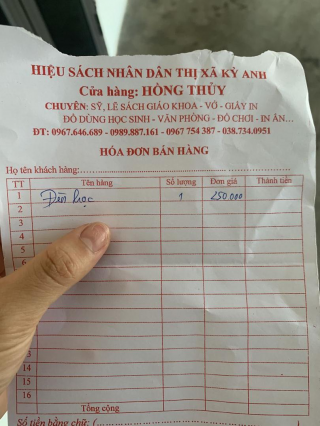 HIỆU SÁCH NHÂN DÂN THỊ XÃ KỲ ANH
Cửa hàng: HỒNG THỦY
CHUYÊN: SỸ, LẺ SÁCH GIÁO KHOA - VỞ - GIẤY IN
ĐỒ DÙNG HỌC SINH - VĂN PHÒNG - ĐỒ CHƠI - IN ẤN...
ĐT: 0967.646.689 - 0989.887.161 - 0967 754 387 - 038.734.0951
HÓA ĐƠN BÁN HÀNG
Họ tên khách hàng:
TT Tên hàng Số lượng Đơn giá Thành tiền
1 Đèn học 1 250.000
2
3
4
5
6
13
14
15
16
Tổng cộng
Số tiền bằng chữ: (